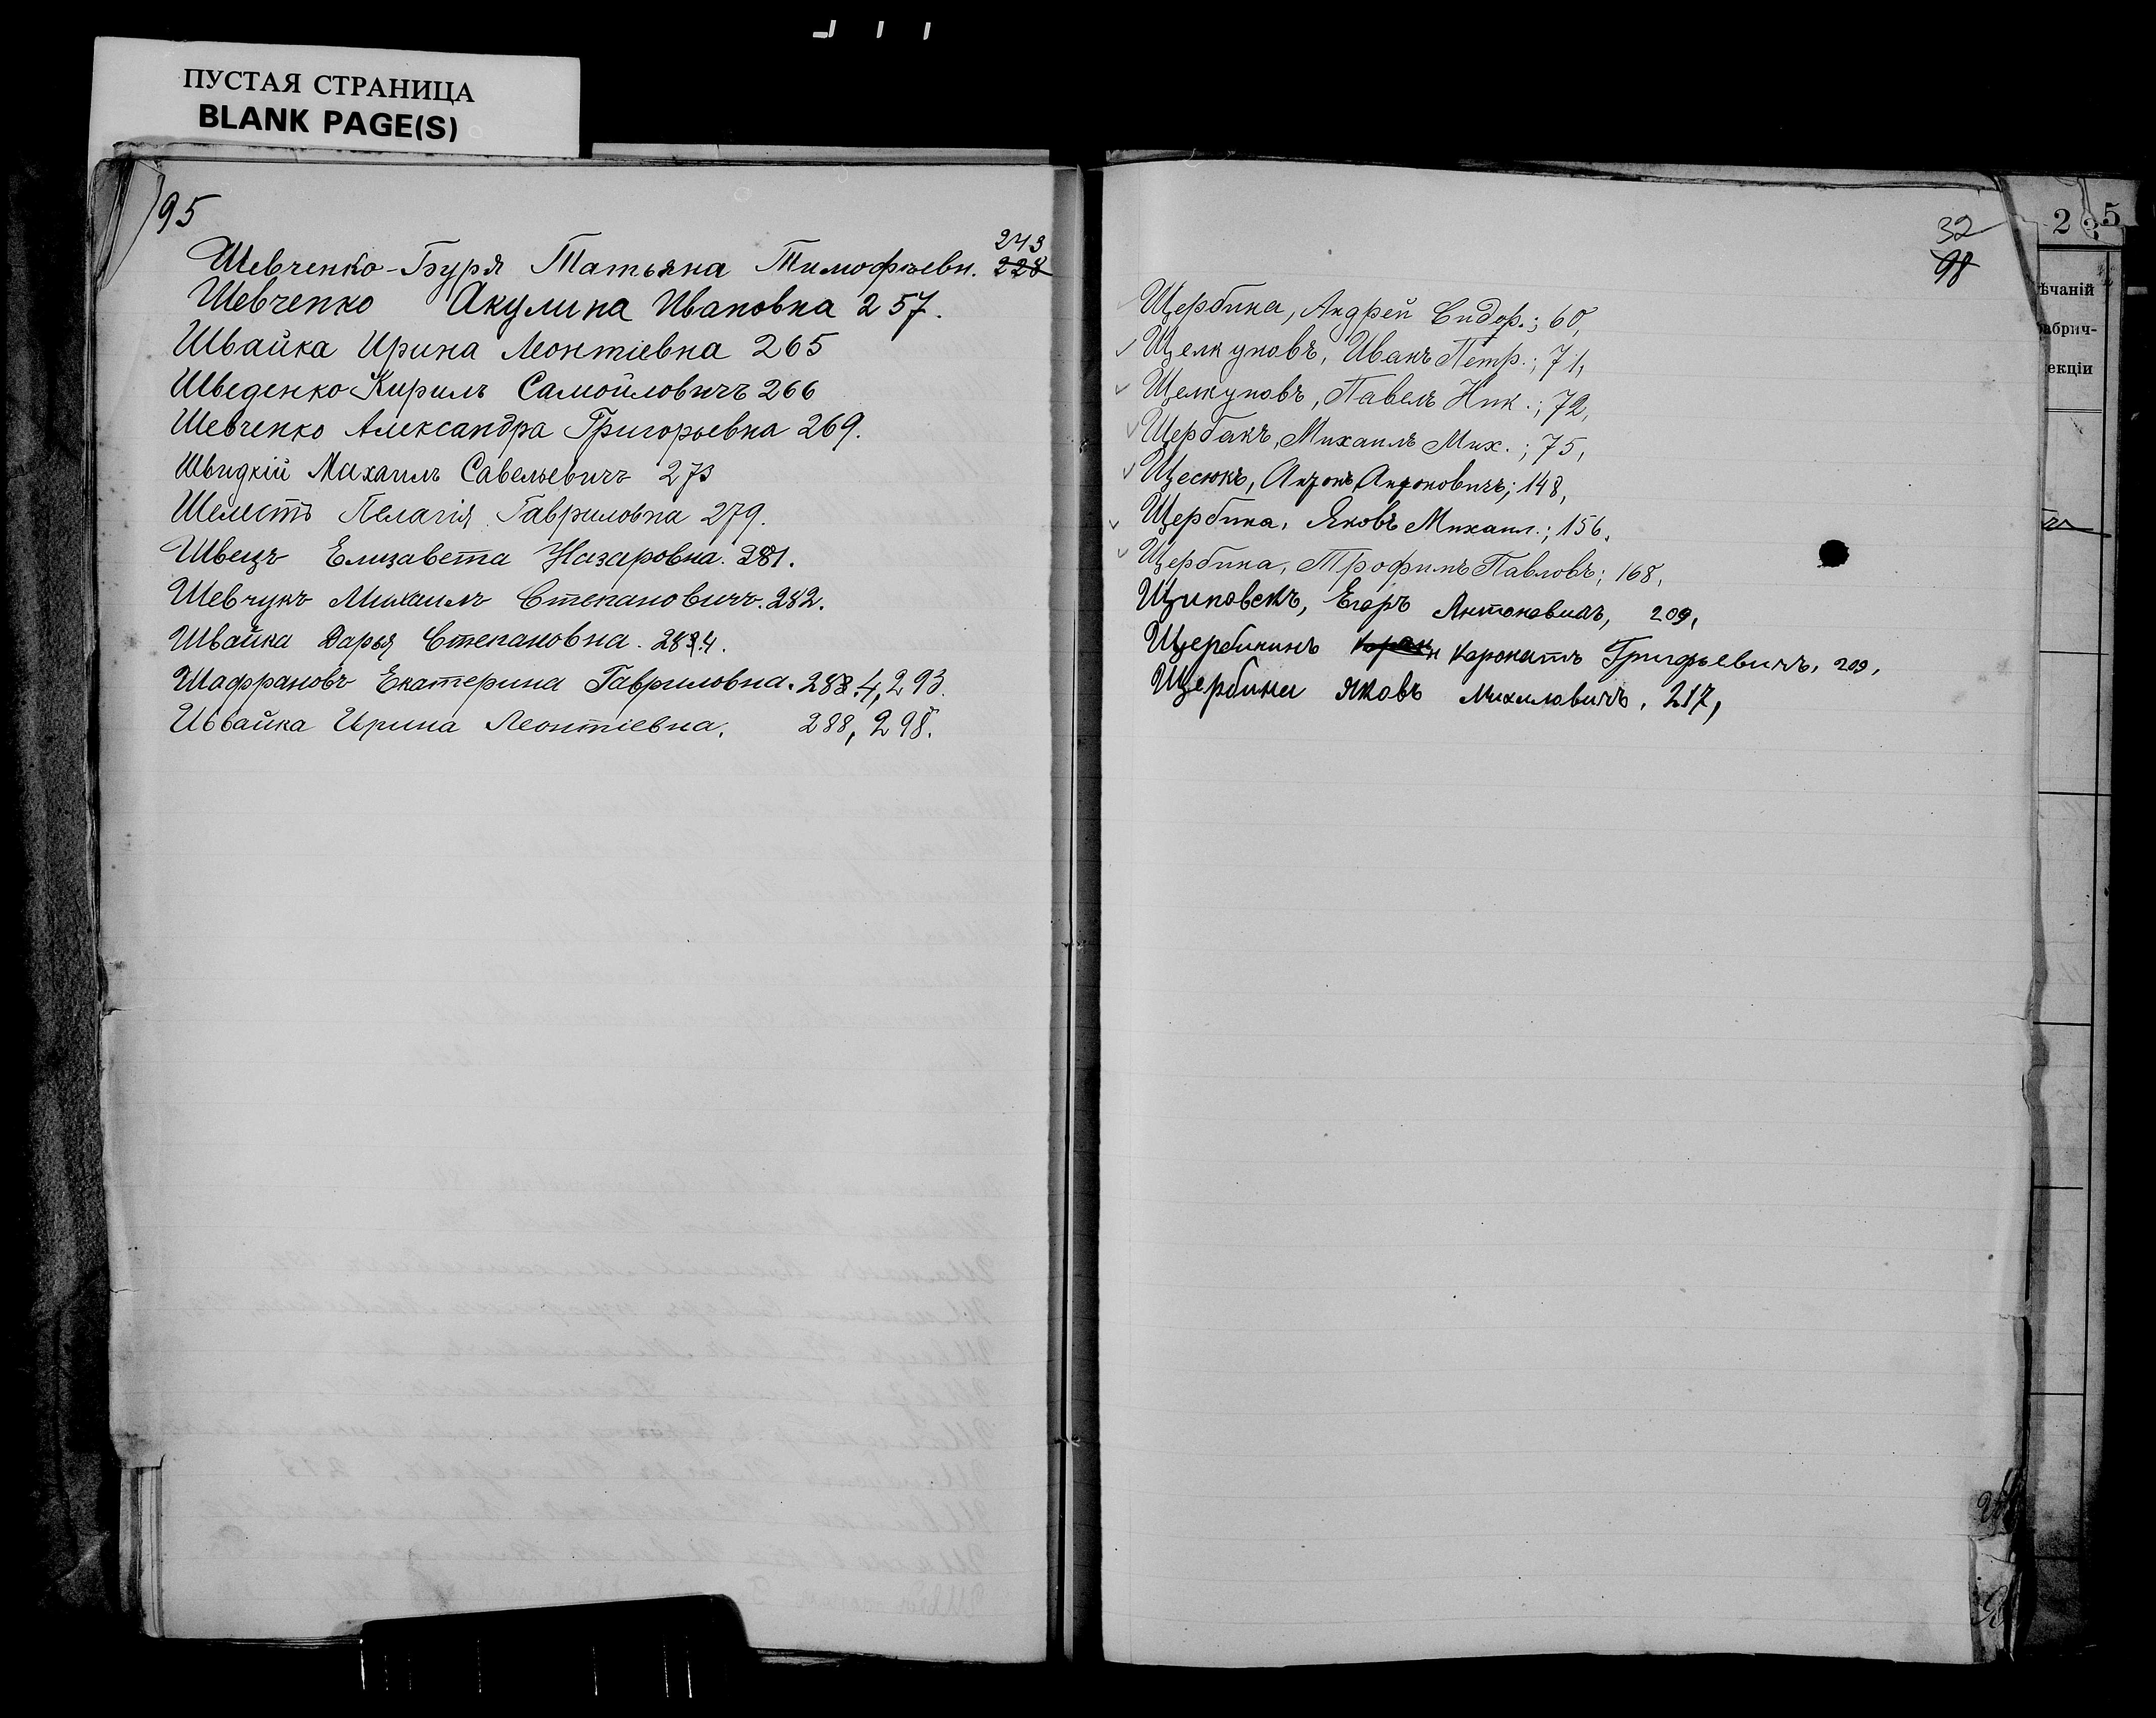 ПУСТАЯ СТРАНИЦА
BLANK PAGE(S)
95
243
Шевченко-Буря Татьяна Тимофѣевн. 228
Шевченко Акулина Ивановна 257.
Швайка Ирина Леонтіевна 265
Шведенко Кирилъ Самойловичъ 266
Шевченко Александра Григорьевна 269.
Швидкій Михаилъ Савельевичъ 273
Шелестъ Пелагія Гавриловна 279.
Швецъ Елизавета Назаровна. 281.
Шевчукъ Михаилъ Степановичъ. 282.
Швайка Дарья Степановна. 284.
Шаффрановъ Екатерина Гавриловна. 284, 293.
Швайка Ирина Леонтіевна. 288, 298.
32
98
Щербина, Андрей Сидор.; 60,
Щелкуновъ, Иванъ Петр.; 71,
Щелкуновъ, Павелъ Ник.; 72,
Щербакъ, Михаилъ Мих.; 75,
Щесюкъ, Антонъ Антоновичъ; 148,
Щербина, Яковъ Михаил.; 156.
Щербина, Трофимъ Павловъ; 168,
Щиповскъ, Егоръ Антоновичъ, 209,
Щербининъ Каронатъ Григорьевичъ, 209,
Щербина Яковъ Михиловичъ. 217,
2 3 5
ѣчаній
абрич-
екціи